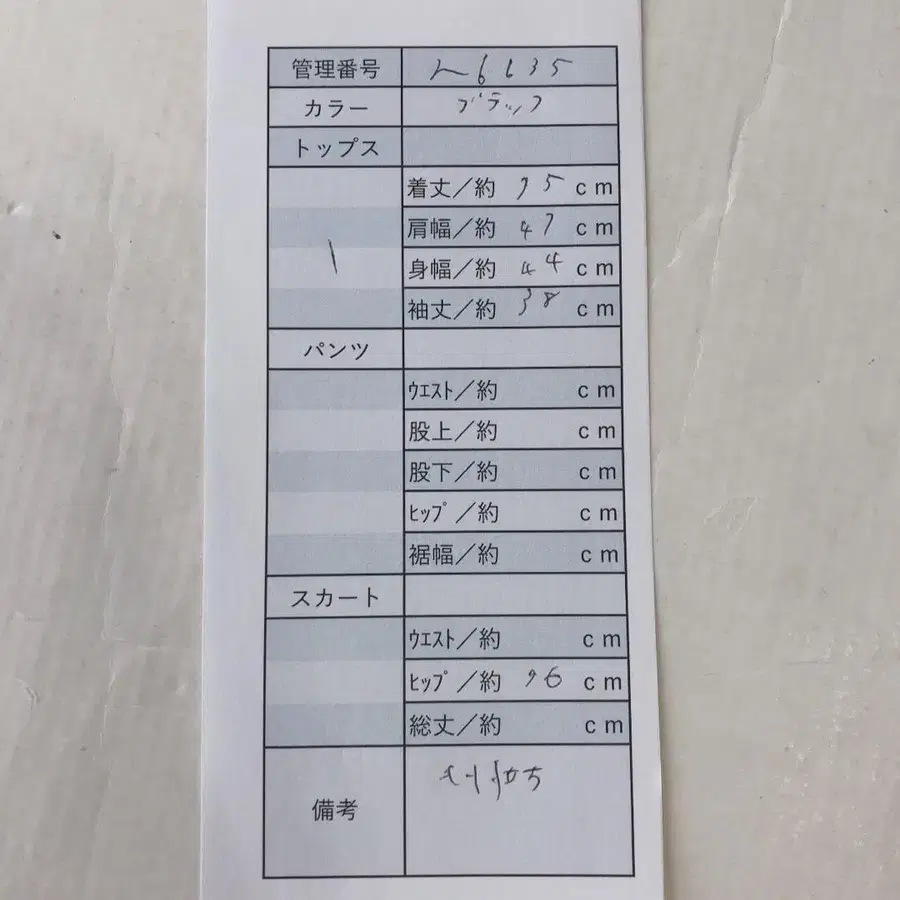 管理番号
カラー ブラック
トップス
着丈／約 95 cm
肩幅／約 47 cm
身幅／約 44 cm
袖丈／約 38 cm
パンツ
ｳｴｽﾄ／約 cm
股上／約 cm
股下／約 cm
ﾋｯﾌﾟ／約 cm
裾幅／約 cm
スカート
ｳｴｽﾄ／約 cm
ﾋｯﾌﾟ／約 96 cm
総丈／約 cm
備考